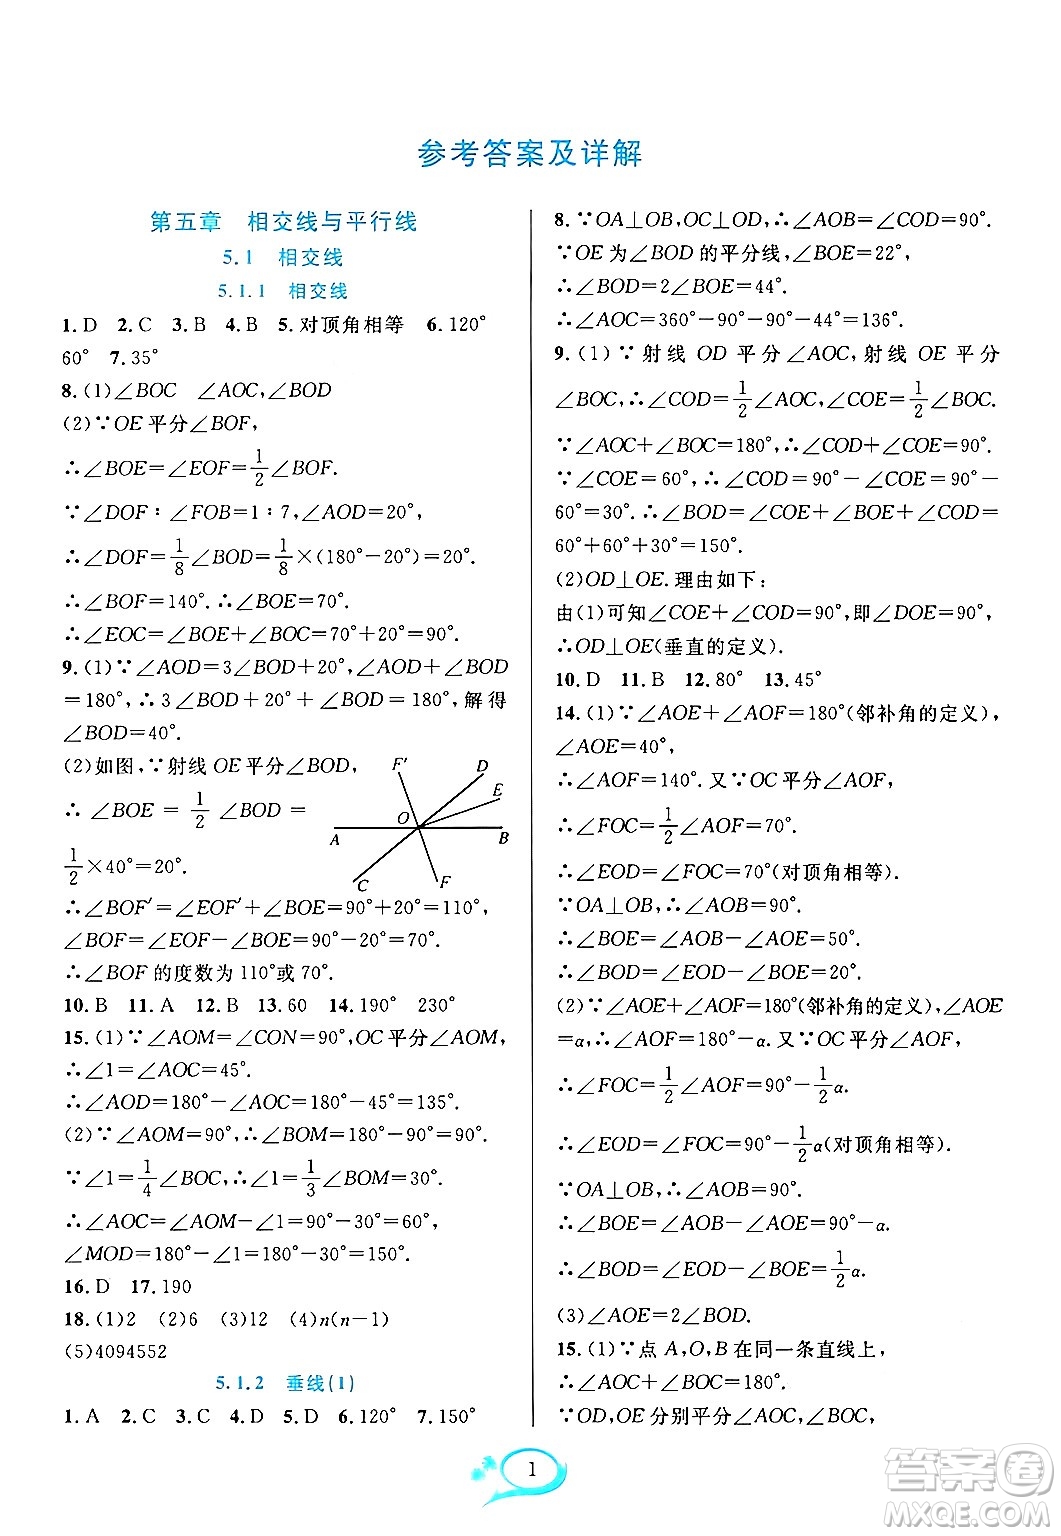 参考答案及详解
第五章 相交线与平行线
5.1 相交线
5.1.1 相交线
1.D 2.C 3.B 4.B 5.对顶角相等 6.120°
60° 7.35°
8.(1)∠BOC ∠AOC,∠BOD
(2)∵OE平分∠BOF,
∴∠BOE=∠EOF=1/2∠BOF.
∵∠DOF∶∠FOB=1∶7,∠AOD=20°,
∴∠DOF=1/8∠BOD=1/8×(180°-20°)=20°.
∴∠BOF=140°.∴∠BOE=70°.
∴∠EOC=∠BOE+∠BOC=70°+20°=90°.
9.(1)∵∠AOD=3∠BOD+20°,∠AOD+∠BOD
=180°,∴3∠BOD+20°+∠BOD=180°,解得
∠BOD=40°.
(2)如图,∵射线OE平分∠BOD,
∴∠BOE=1/2∠BOD=
1/2×40°=20°.
F′ D E O A B C F
∴∠BOF′=∠EOF′+∠BOE=90°+20°=110°,
∠BOF=∠EOF-∠BOE=90°-20°=70°.
∴∠BOF的度数为110°或70°.
10.B 11.A 12.B 13.60 14.190° 230°
15.(1)∵∠AOM=∠CON=90°,OC平分∠AOM,
∴∠1=∠AOC=45°.
∴∠AOD=180°-∠AOC=180°-45°=135°.
(2)∵∠AOM=90°,∴∠BOM=180°-90°=90°.
∵∠1=1/4∠BOC,∴∠1=1/3∠BOM=30°.
∴∠AOC=∠AOM-∠1=90°-30°=60°,
∠MOD=180°-∠1=180°-30°=150°.
16.D 17.190
18.(1)2 (2)6 (3)12 (4)n(n-1)
(5)4094552
5.1.2 垂线(1)
1.A 2.C 3.C 4.D 5.D 6.120° 7.150°
8.∵OA⊥OB,OC⊥OD,∴∠AOB=∠COD=90°.
∵OE为∠BOD的平分线,∠BOE=22°,
∴∠BOD=2∠BOE=44°.
∴∠AOC=360°-90°-90°-44°=136°.
9.(1)∵射线OD平分∠AOC,射线OE平分
∠BOC,∴∠COD=1/2∠AOC,∠COE=1/2∠BOC.
∵∠AOC+∠BOC=180°,∴∠COD+∠COE=90°.
∵∠COE=60°,∴∠COD=90°-∠COE=90°-
60°=30°.∴∠BOD=∠COE+∠BOE+∠COD=
60°+60°+30°=150°.
(2)OD⊥OE.理由如下:
由(1)可知∠COE+∠COD=90°,即∠DOE=90°,
∴OD⊥OE(垂直的定义).
10.D 11.B 12.80° 13.45°
14.(1)∵∠AOE+∠AOF=180°(邻补角的定义),
∠AOE=40°,
∴∠AOF=140°.又∵OC平分∠AOF,
∴∠FOC=1/2∠AOF=70°.
∴∠EOD=∠FOC=70°(对顶角相等).
∵OA⊥OB,∴∠AOB=90°.
∴∠BOE=∠AOB-∠AOE=50°.
∴∠BOD=∠EOD-∠BOE=20°.
(2)∵∠AOE+∠AOF=180°(邻补角的定义),∠AOE
=α,∴∠AOF=180°-α.又∵OC平分∠AOF,
∴∠FOC=1/2∠AOF=90°-1/2α.
∴∠EOD=∠FOC=90°-1/2α(对顶角相等).
∵OA⊥OB,∴∠AOB=90°.
∴∠BOE=∠AOB-∠AOE=90°-α.
∴∠BOD=∠EOD-∠BOE=1/2α.
(3)∠AOE=2∠BOD.
15.(1)∵点A,O,B在同一条直线上,
∴∠AOC+∠BOC=180°.
∵OD,OE分别平分∠AOC,∠BOC,
1
答案圈
MXQE.COM